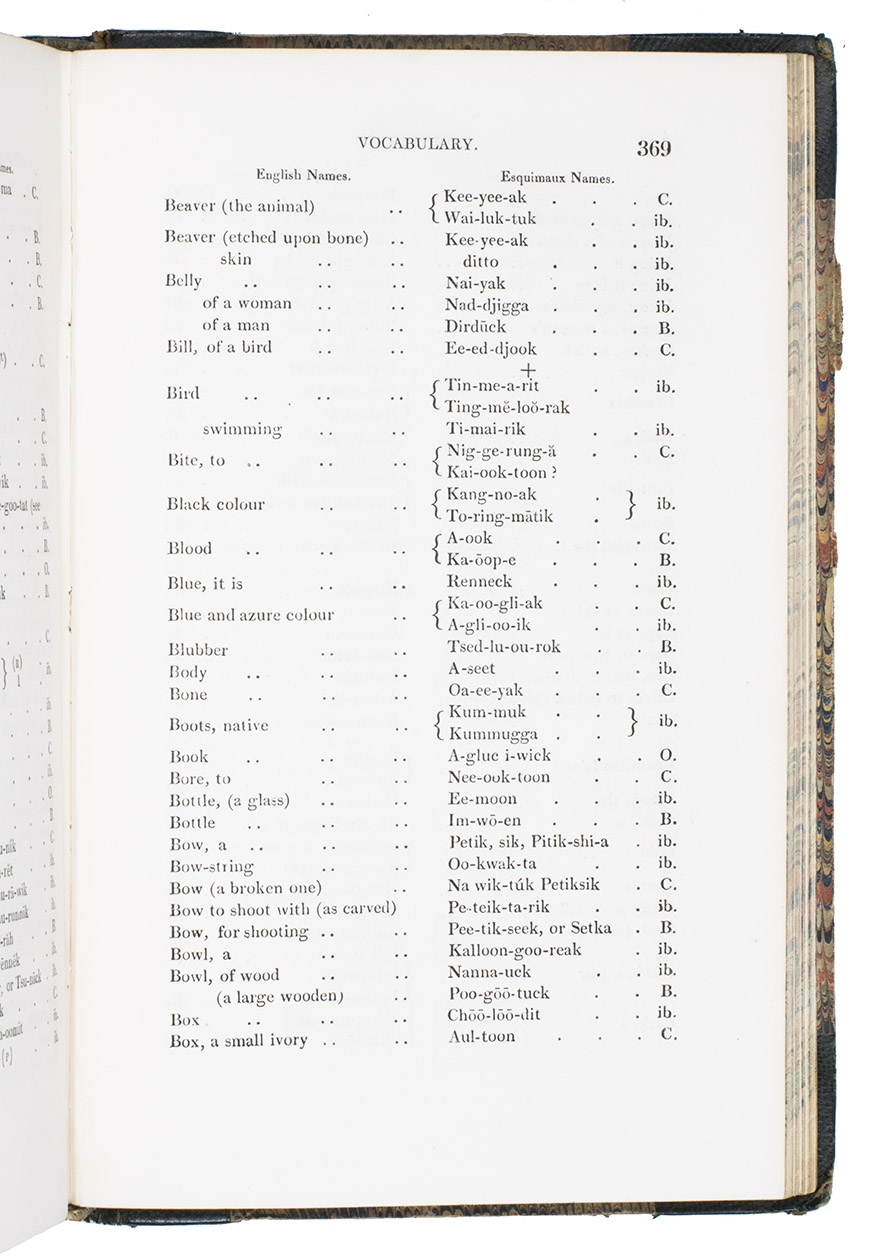 VOCABULARY. 369
English Names. Esquimaux Names.
Beaver (the animal) .. { Kee-yee-ak . . . C.
Wai-luk-tuk . . ib.
Beaver (etched upon bone) .. Kee-yee-ak . . ib.
skin .. .. ditto . . . ib.
Belly .. .. .. Nai-yak . . . ib.
of a woman .. .. Nad-djigga . . . ib.
of a man .. .. Dirdŭck . . . B.
Bill, of a bird .. .. Ee-ed-djook . . C.
+
Bird .. .. .. { Tin-me-a-rit . . ib.
Ting-mĕ-loŏ-rak
swimming .. .. Ti-mai-rik . . ib.
Bite, to .. .. .. { Nig-ge-rung-ă . . C.
Kai-ook-toon ?
Black colour .. .. { Kang-no-ak . } ib.
To-ring-mātik .
Blood .. .. .. { A-ook . . . C.
Ka-ōop-e . . . B.
Blue, it is .. .. Renneck . . . ib.
Blue and azure colour .. { Ka-oo-gli-ak . . C.
A-gli-oo-ik . . ib.
Blubber .. .. Tsed-lu-ou-rok . . B.
Body .. .. .. A-seet . . . ib.
Bone .. .. .. Oa-ee-yak . . . C.
Boots, native .. .. { Kum-muk . . } ib.
Kummugga . .
Book .. .. .. A-gluc i-wick . . O.
Bore, to .. .. Nee-ook-toon . . C.
Bottle, (a glass) .. .. Ee-moon . . . ib.
Bottle .. .. .. Im-wō-en . . . B.
Bow, a .. .. .. Petik, sik, Pitik-shi-a . ib.
Bow-string .. .. Oo-kwak-ta . . ib.
Bow (a broken one) .. Na wik-túk Petiksik . C.
Bow to shoot with (as carved) Pe-teik-ta-rik . . ib.
Bow, for shooting .. .. Pee-tik-seek, or Setka . B.
Bowl, a .. .. Kalloon-goo-reak . ib.
Bowl, of wood .. .. Nanna-uck . . ib.
(a large wooden) .. Poo-gōō-tuck . . B.
Box .. .. .. Chōō-lōō-dit . . ib.
Box, a small ivory .. .. Aul-toon . . . C.